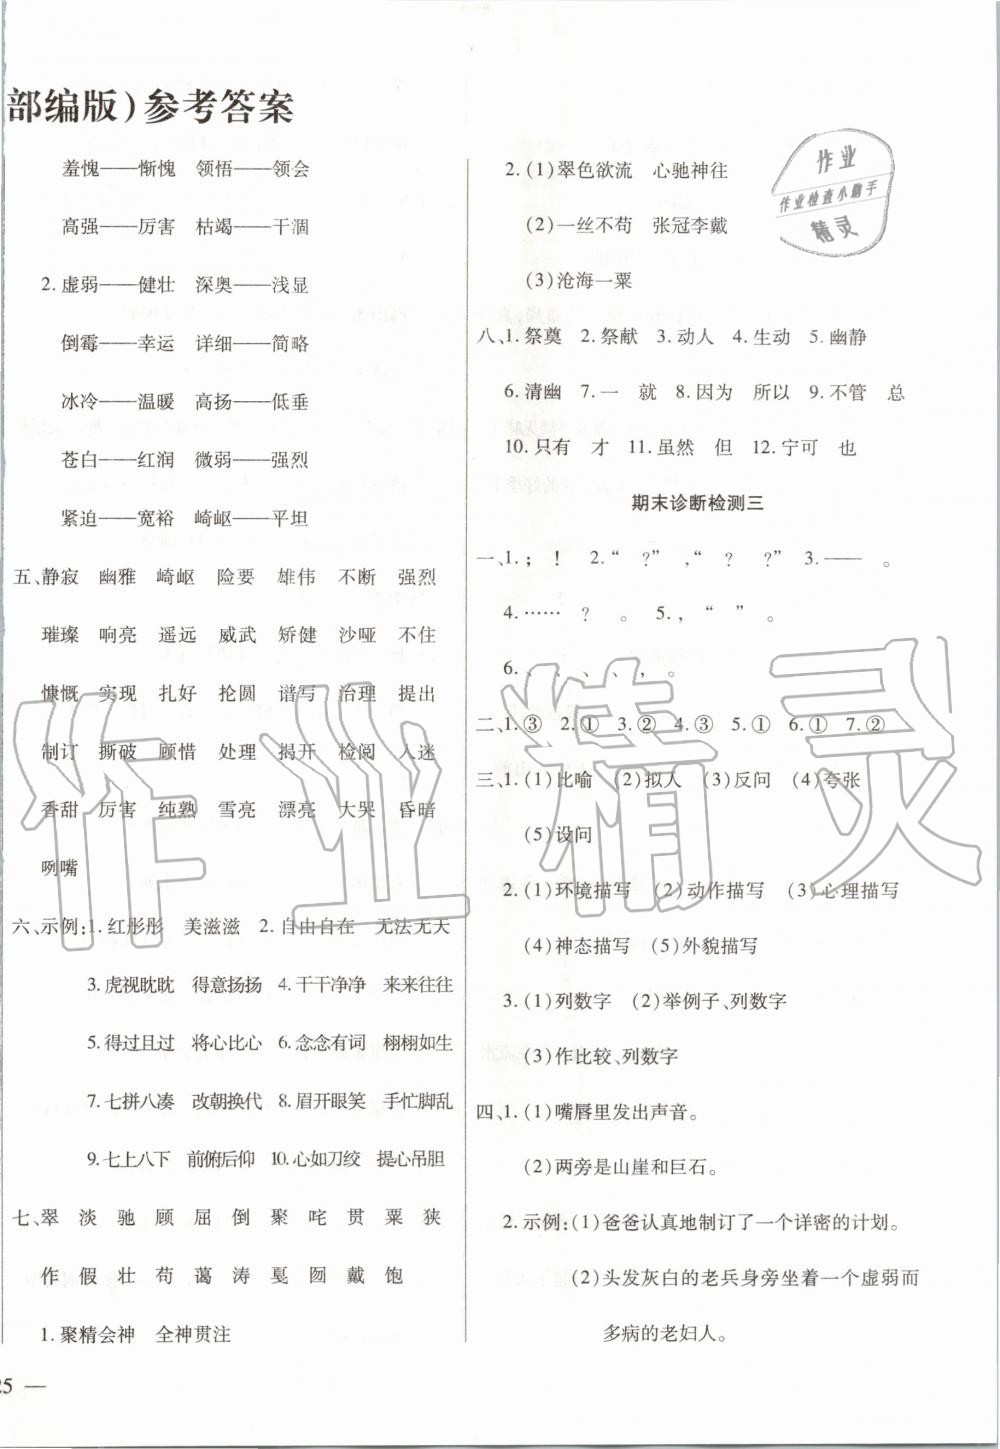 部编版)参考答案
羞愧——惭愧 领悟——领会
高强——厉害 枯竭——干涸
2.虚弱——健壮 深奥——浅显
倒霉——幸运 详细——简略
冰冷——温暖 高扬——低垂
苍白——红润 微弱——强烈
紧迫——宽裕 崎岖——平坦
五、静寂 幽雅 崎岖 险要 雄伟 不断 强烈
璀璨 响亮 遥远 威武 矫健 沙哑 不住
慷慨 实现 扎好 抡圆 谱写 治理 提出
制订 撕破 顾惜 处理 揭开 检阅 入迷
香甜 厉害 纯熟 雪亮 漂亮 大哭 昏暗
咧嘴
六、示例:1.红彤彤 美滋滋 2.自由自在 无法无天
3.虎视眈眈 得意扬扬 4.干干净净 来来往往
5.得过且过 将心比心 6.念念有词 栩栩如生
7.七拼八凑 改朝换代 8.眉开眼笑 手忙脚乱
9.七上八下 前俯后仰 10.心如刀绞 提心吊胆
七、翠 淡 驰 顾 屈 倒 聚 咤 贯 粟 狭
作 假 壮 苟 蔼 涛 戛 囫 戴 饱
1.聚精会神 全神贯注
25 —
2.(1)翠色欲流 心驰神往
(2)一丝不苟 张冠李戴
(3)沧海一粟
八、1.祭奠 2.祭献 3.动人 4.生动 5.幽静
6.清幽 7.一 就 8.因为 所以 9.不管 总
10.只有 才 11.虽然 但 12.宁可 也
期末诊断检测三
一、1.; ! 2.“ ?”,“ ? ?” 3.—— 。
4.…… ? 。 5., “ ”。
6.、 、 、 、 , 。
二、1.③ 2.① 3.② 4.③ 5.① 6.① 7.②
三、1.(1)比喻 (2)拟人 (3)反问 (4)夸张
(5)设问
2.(1)环境描写 (2)动作描写 (3)心理描写
(4)神态描写 (5)外貌描写
3.(1)列数字 (2)举例子、列数字
(3)作比较、列数字
四、1.(1)嘴唇里发出声音。
(2)两旁是山崖和巨石。
2.示例:(1)爸爸认真地制订了一个详密的计划。
(2)头发灰白的老兵身旁坐着一个虚弱而
多病的老妇人。
作业
作业检查小助手
精灵
作业精灵